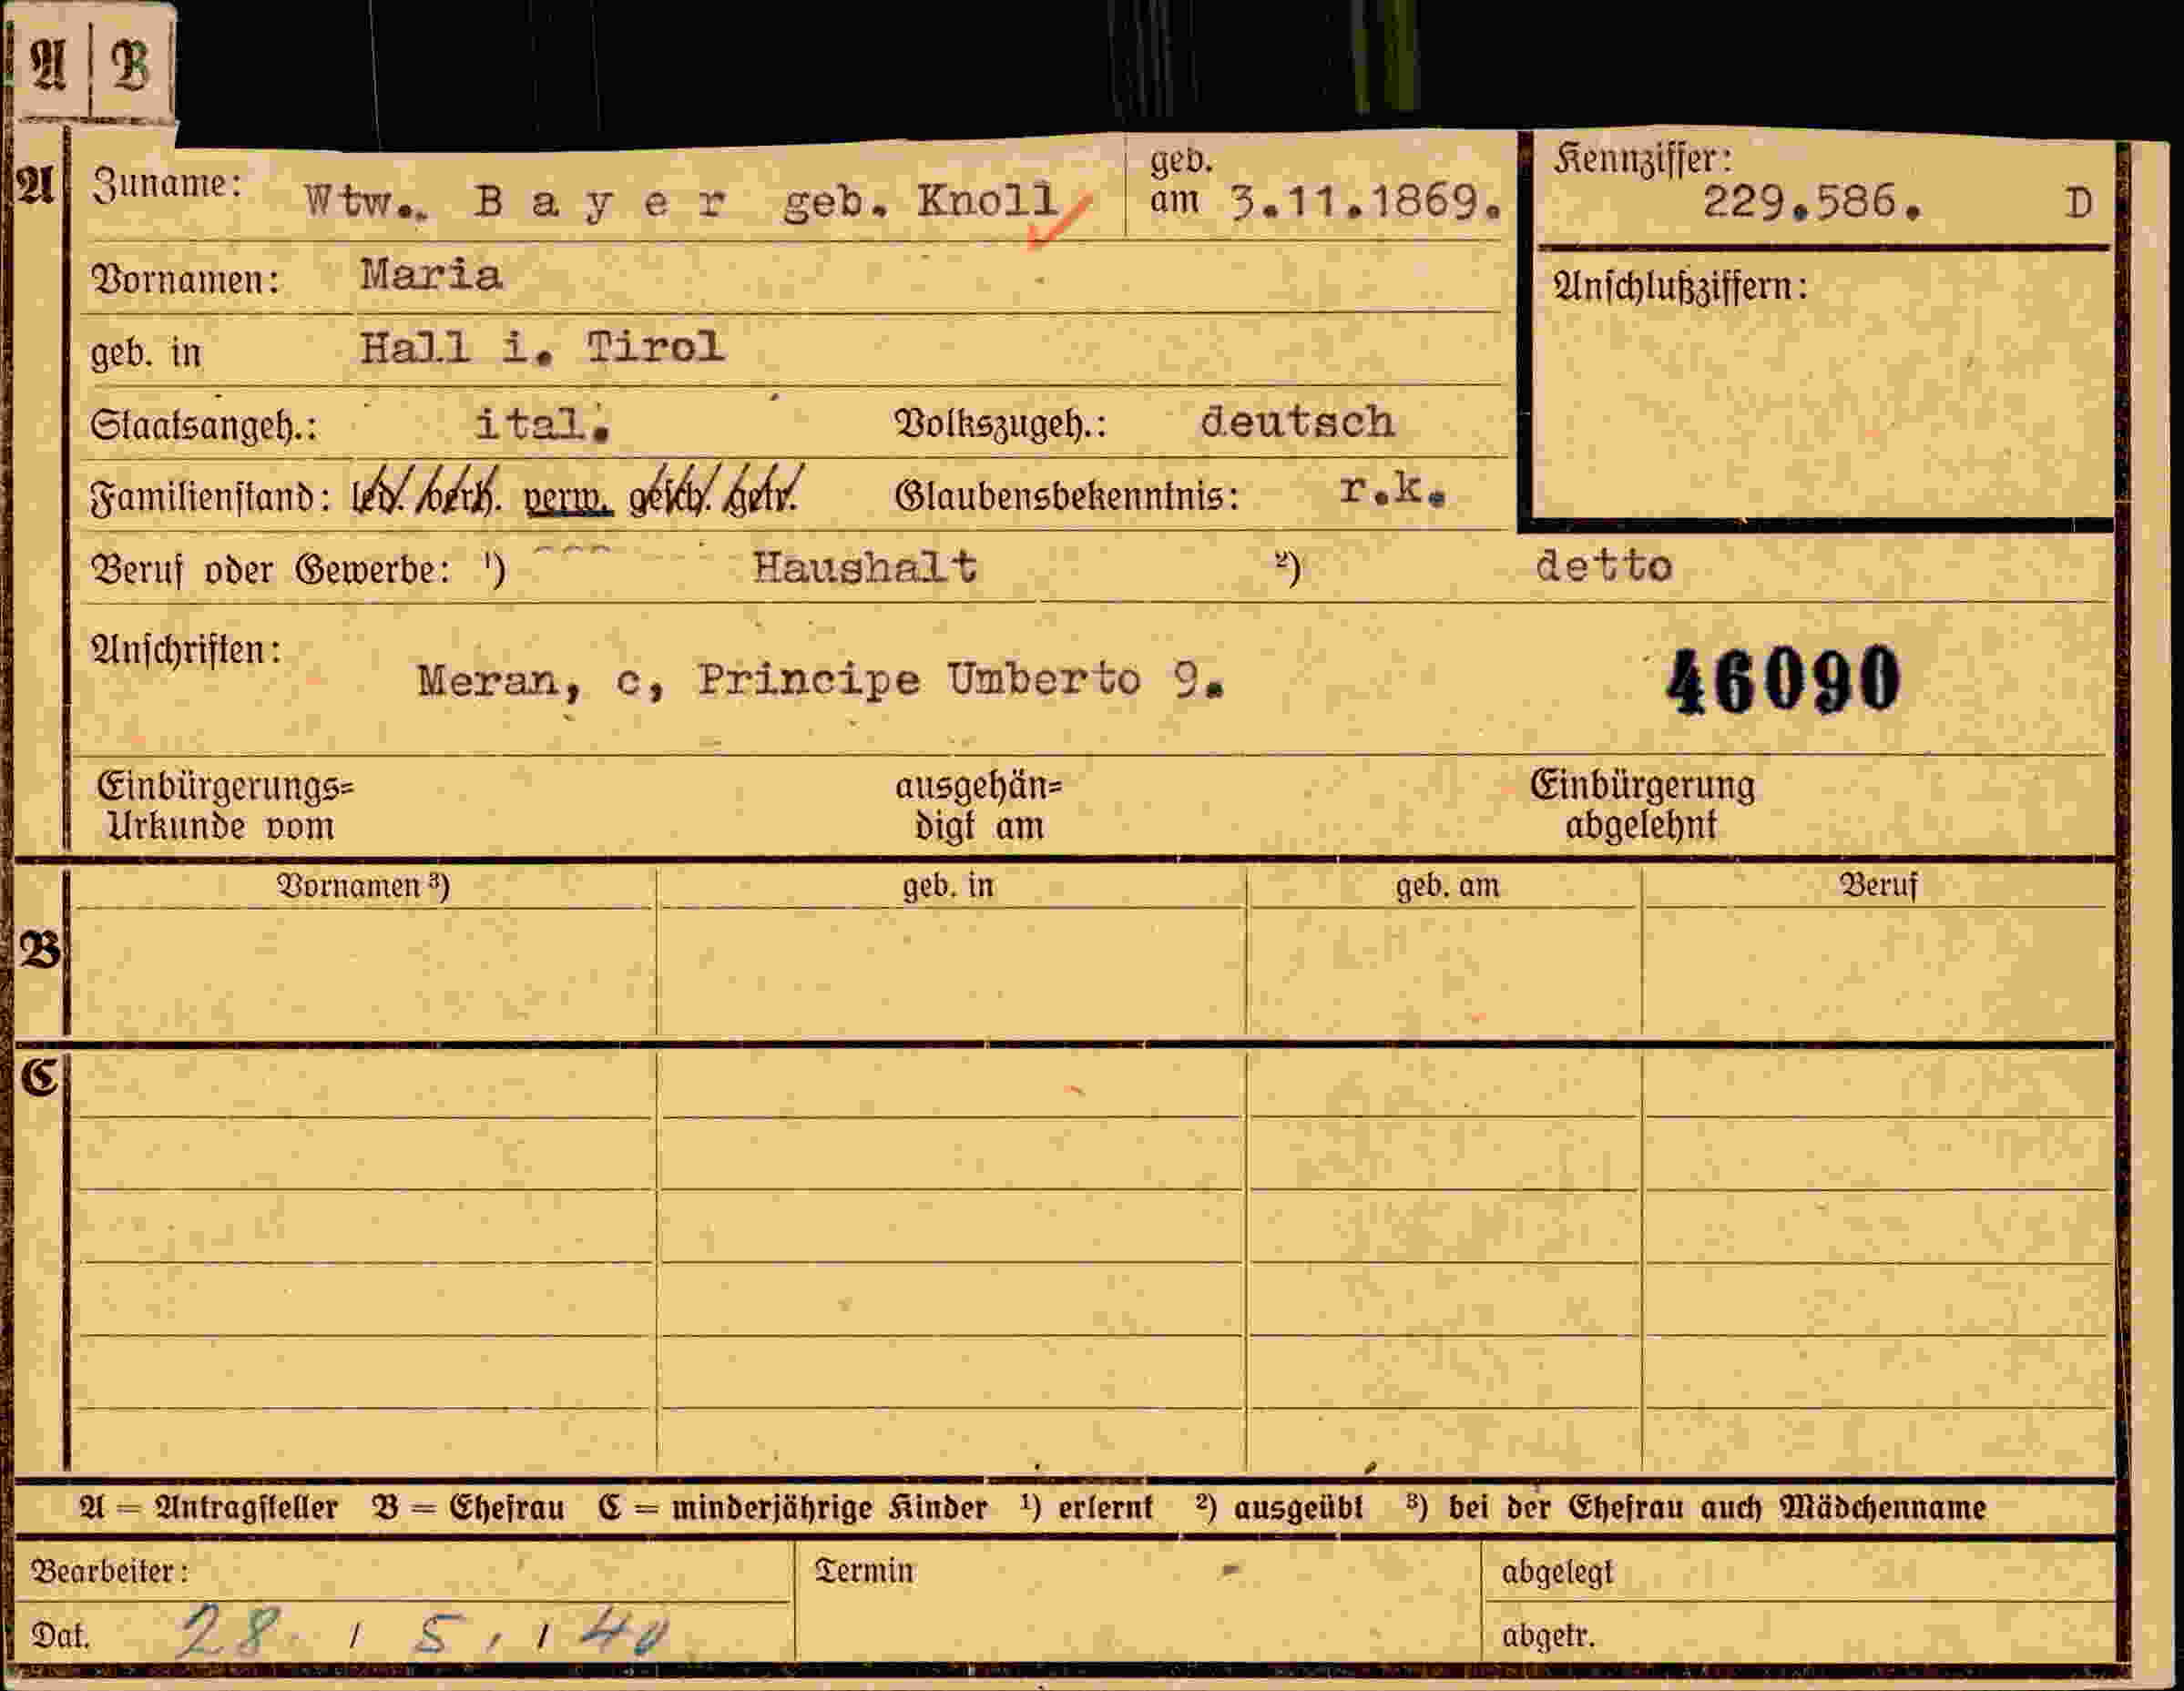 A B
A Zuname: Wtw.. B a y e r geb. Knoll geb. am 3.11.1869. Kennziffer: 229.586. D
Vornamen: Maria Anschlußziffern:
geb. in Hall i. Tirol
Staatsangeh.: ital. Volkszugeh.: deutsch
Familienstand: led. verh. verw. gesch. getr. Glaubensbekenntnis: r.k.
Beruf oder Gewerbe: ¹) Haushalt ²) detto
Anschriften: Meran, c, Principe Umberto 9. 46090
Einbürgerungs= ausgehän= Einbürgerung
Urkunde vom digt am abgelehnt
Vornamen ³) geb. in geb. am Beruf
B
C
A = Antragsteller B = Ehefrau C = minderjährige Kinder ¹) erlernt ²) ausgeübt ³) bei der Ehefrau auch Mädchenname
Bearbeiter: Termin abgelegt
Dat. 28. / 5. / 40 abgetr.